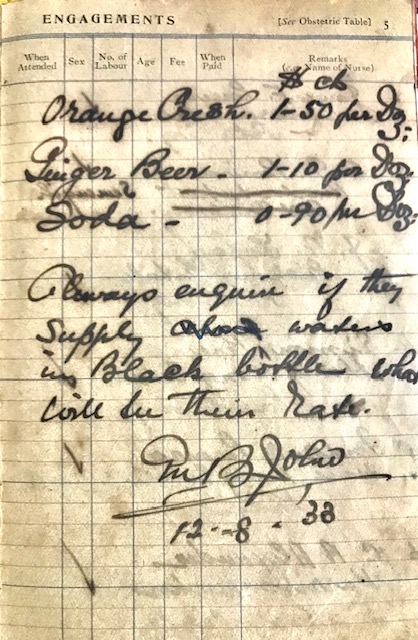 ENGAGEMENTS [See Obstetric Table] 5
When Attended Sex No. of Labour Age Fee When Paid Remarks (e.g. Name of Nurse)
$ cts
Orange Crush. 1-50 per Doz.
Ginger Beer - 1-10 per Doz.
Soda - 0-90 per Doz.
Always enquire if they
supply waters
in Black bottle what
will be their Rate.
M B John
12-8-33